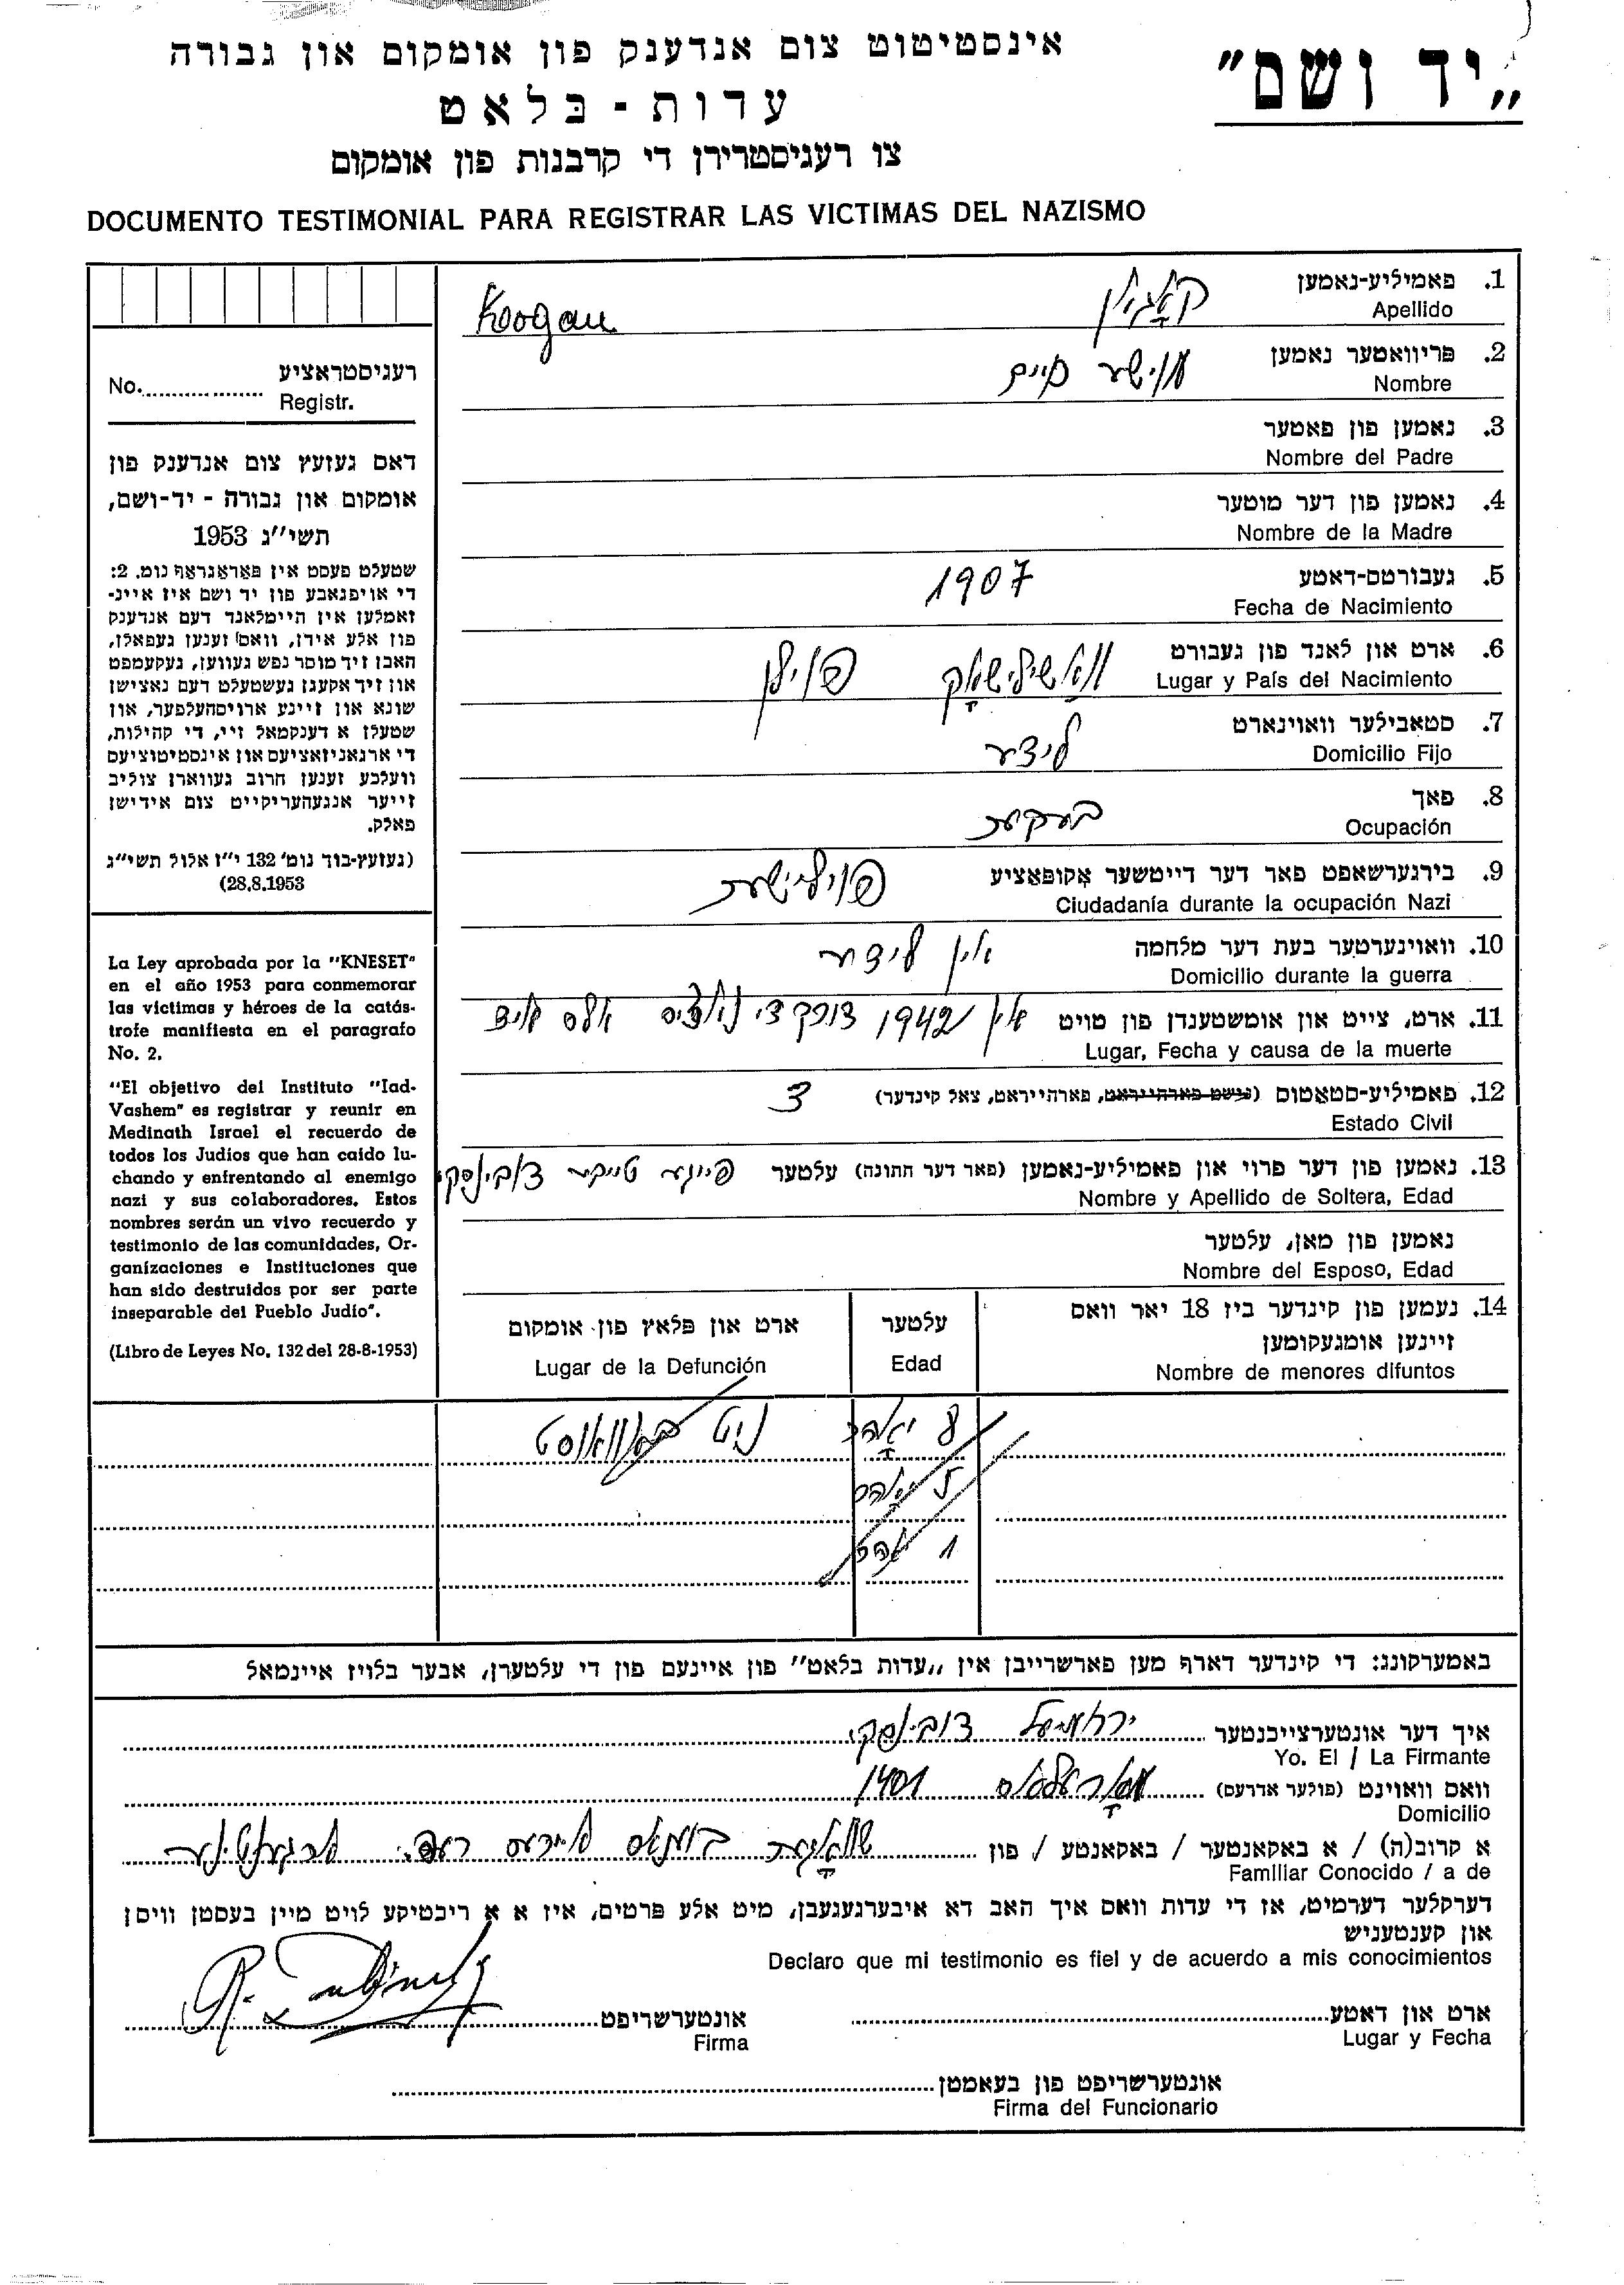 „יד ושם"
אינסטיטוט צום אנדענק פון אומקום און גבורה
עדות - בלאט
צו רעגיסטרירן די קרבנות פון אומקום
DOCUMENTO TESTIMONIAL PARA REGISTRAR LAS VICTIMAS DEL NAZISMO
1. פאמיליע-נאמען קאָגאן Koogan
Apellido
2. פריוואטער נאמען אישער חיים
Nombre
3. נאמען פון פאטער
Nombre del Padre
4. נאמען פון דער מוטער
Nombre de la Madre
5. געבורטס-דאטע 1907
Fecha de Nacimiento
6. ארט און לאנד פון געבורט וואשילישאָק פוילן
Lugar y País del Nacimiento
7. סטאבילער וואוינארט לידע
Domicilio Fijo
8. פאך בעקער
Ocupación
9. בירגערשאפט פאר דער דייטשער אָקופּאַציע פוילישער
Ciudadanía durante la ocupación Nazi
10. וואוינערטער בעת דער מלחמה אין לידע
Domicilio durante la guerra
11. ארט, צייט און אומשטענדן פון טויט אין 1942 דורך די נאציס אלס איד
Lugar, Fecha y causa de la muerte
12. פאמיליע-סטאטוס (נישט פארהייראט, פארהייראט, צאל קינדער) 3
Estado Civil
13. נאמען פון דער פרוי און פאמיליע-נאמען (פאר דער חתונה) עלטער פייגע טייבע דובינסקי
Nombre y Apellido de Soltera, Edad
נאמען פון מאן, עלטער
Nombre del Esposo, Edad
14. נעמען פון קינדער ביז 18 יאר וואס
זיינען אומגעקומען
Nombre de menores difuntos
עלטער
Edad
ארט און פלאץ פון אומקום
Lugar de la Defunción
8 יאָהר ניט באוואוסט
5 יאָהר
1 יאהר
רעגיסטראציע
No. Registr.
דאס געזעץ צום אנדענק פון
אומקום און גבורה - יד-ושם,
תשי"ג 1953
שטעלט פעסט אין פאראגראף נומ. 2:
די אויפגאבע פון יד ושם איז איינ-
זאמלען אין היימלאנד דעם אנדענק
פון אלע אידן, וואס זענען געפאלן,
האבן זיך מוסר נפש געווען, געקעמפט
און זיך אקעגן געשטעלט דעם נאצישן
שונא און זיינע ארויסהעלפער, און
שטעלן א דענקמאל זיי, די קהילות,
די ארגאניזאציעס און אינסטיטוציעס
וועלכע זענען חרוב געווארן צוליב
זייער אנגעהעריקייט צום אידישן
פאלק.
(געזעץ-בוך נומ' 132 י"ז אלול תשי"ג
28.8.1953)
La Ley aprobada por la "KNESET"
en el año 1953 para conmemorar
las víctimas y héroes de la catás-
trofe manifiesta en el paragrafo
No. 2.
"El objetivo del Instituto "Iad-
Vashem" es registrar y reunir en
Medinath Israel el recuerdo de
todos los Judios que han caido lu-
chando y enfrentando al enemigo
nazi y sus colaboradores. Estos
nombres serán un vivo recuerdo y
testimonio de las comunidades, Or-
ganízaciones e Instituciones que
han sido destruidos por ser parte
inseparable del Pueblo Judío".
(Libro de Leyes No. 132 del 28-8-1953)
באמערקונג: די קינדער דארף מען פארשרייבן אין „עדות בלאט" פון איינעם פון די עלטערן, אבער בלויז איינמאל
איך דער אונטערצייכנטער ירחמיאל דובינסקי
Yo. El / La Firmante
וואס וואוינט (פולער אדרעס) 1401
Domicilio
א קרוב(ה) / א באקאנטער / באקאנטע / פון שוואָגער בוענאס איירעס רעפ. ארגענטינע
Familiar Conocido / a de
דערקלער דערמיט, אז די עדות וואס איך האב דא איבערגעגעבן, מיט אלע פרטים, איז א א ריכטיקע לויט מיין בעסטן וויסן
און קענטעניש
Declaro que mi testimonio es fiel y de acuerdo a mis conocimientos
ארט און דאטע
Lugar y Fecha
אונטערשריפט
Firma
אונטערשריפט פון בעאמטן
Firma del Funcionario